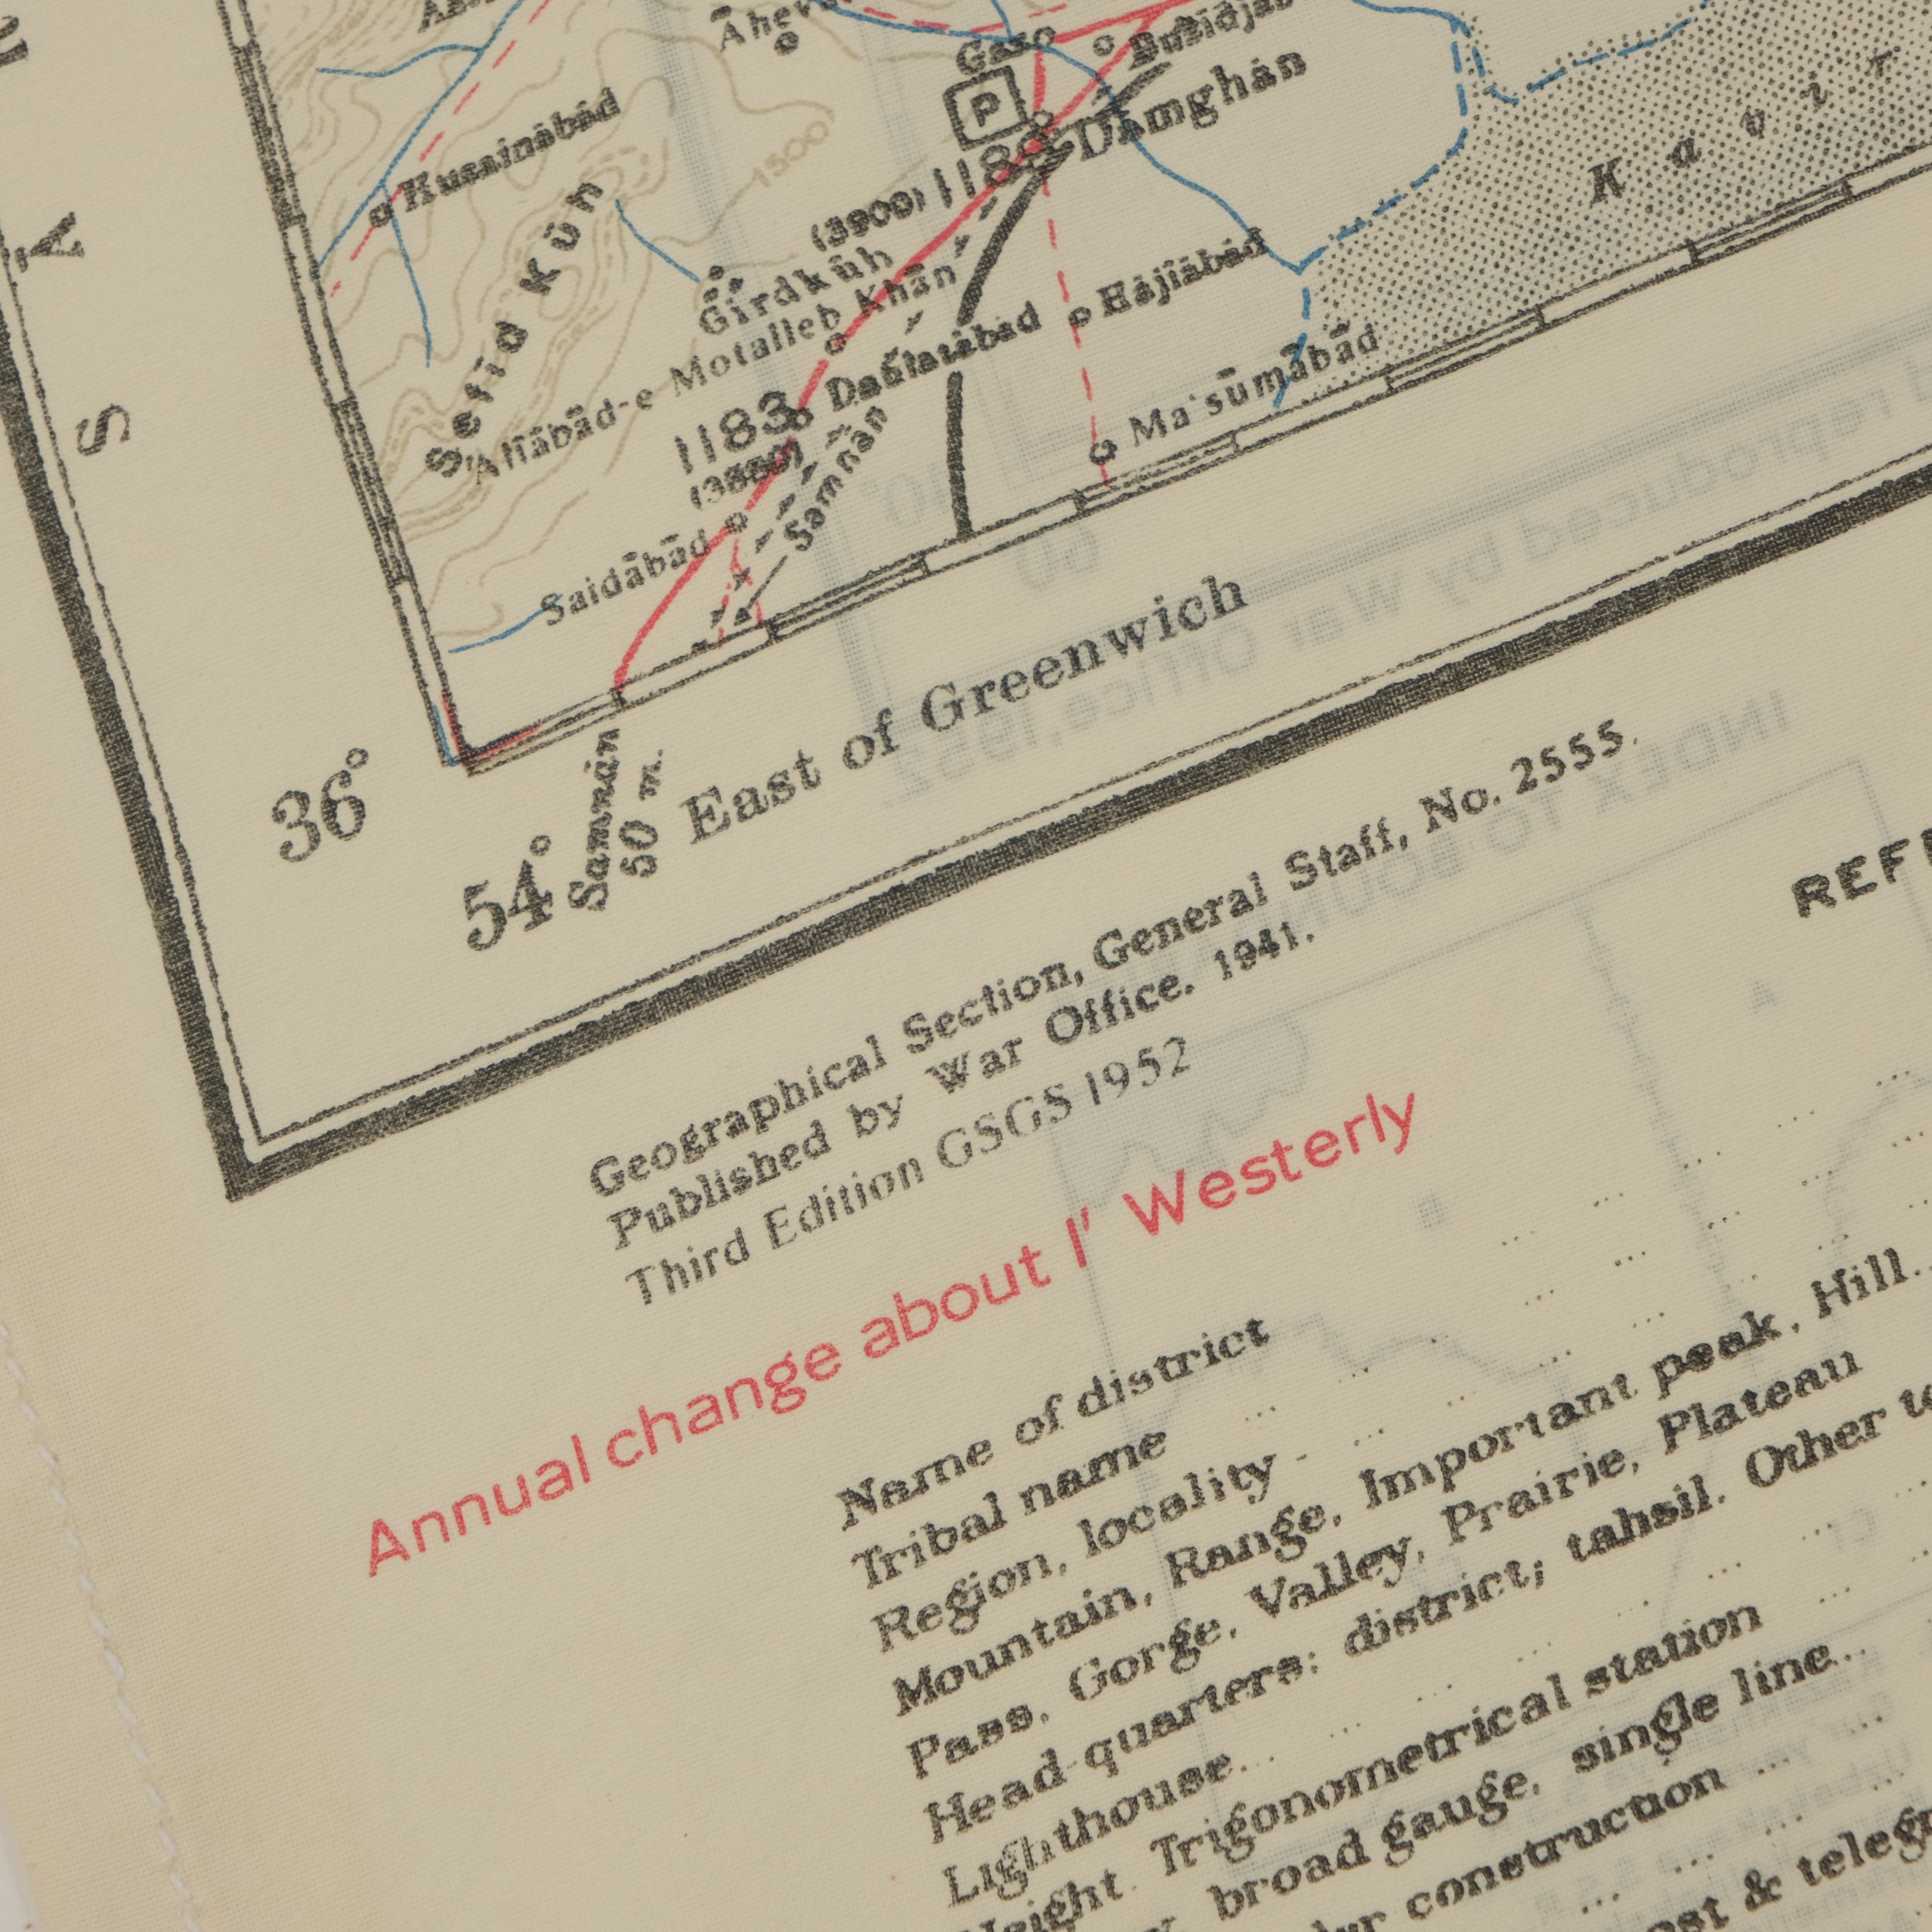 Gaz
P
Dāmghān
Husainābād
(3900) 1189
Sefīd Kūh
Girdkūh
'Alīābād-e Motalleb Khān
Hājīābād
Kavir
1500
1183
Daulatābād
(3880)
Ma'sūmābād
Samnān
Saidābād
S Ā
36°
54°
Samnān
50 m.
East of Greenwich
Geographical Section, General Staff, No. 2555.
Published by War Office. 1941.
Third Edition GSGS 1952
REF
Annual change about 1' Westerly
Name of district
Tribal name
Region, locality
Mountain, Range, Important peak, Hill
Pass, Gorge, Valley, Prairie, Plateau
Head-quarters: district; tahsil. Other
Lighthouse
Height. Trigonometrical station
broad gauge, single line
construction
& telegr
reproduced by War Office, 1952.
INDEX TO BOUN